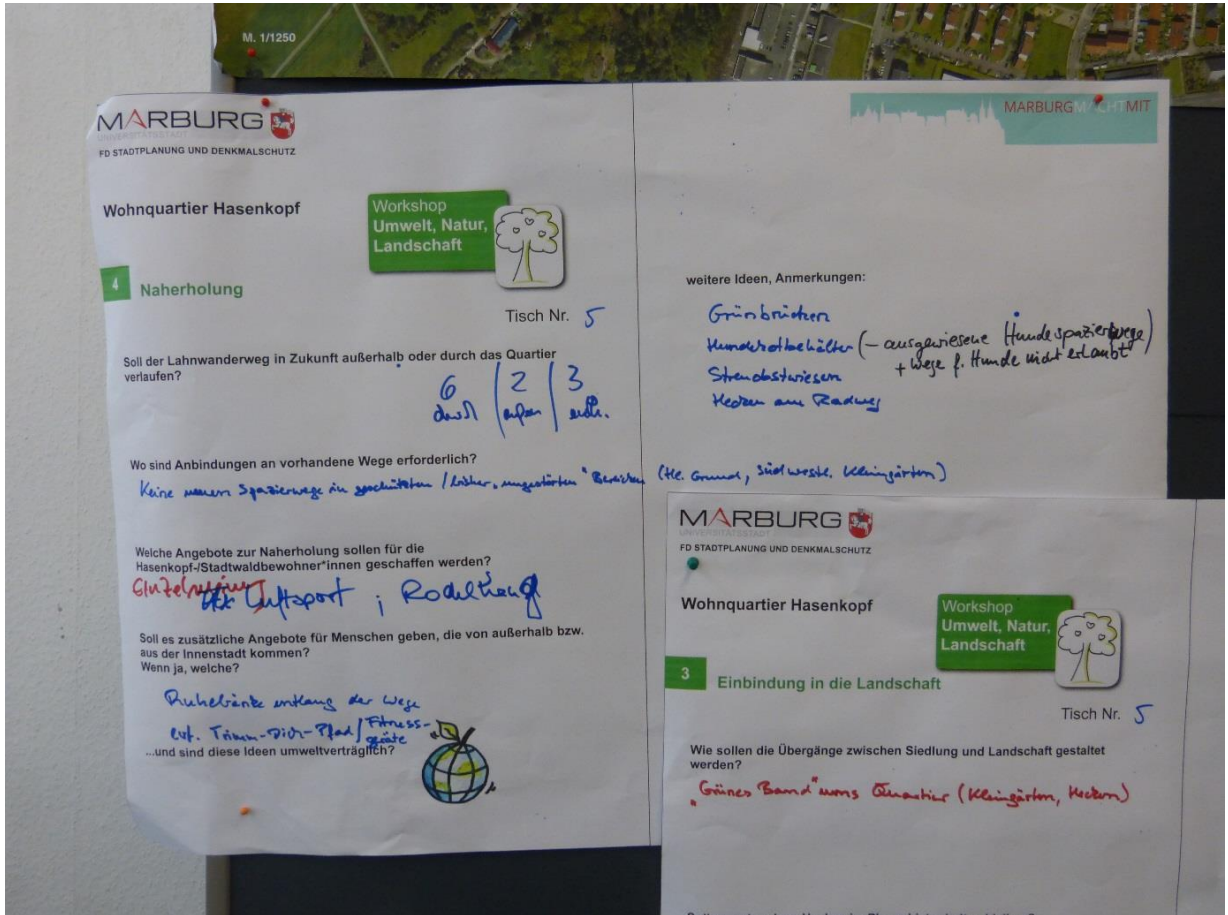 M. 1/1250
MARBURG
UNIVERSITÄTSSTADT
FD STADTPLANUNG UND DENKMALSCHUTZ
MARBURG MACHT MIT
Wohnquartier Hasenkopf
Workshop
Umwelt, Natur,
Landschaft
4 Naherholung
Tisch Nr. 5
Soll der Lahnwanderweg in Zukunft außerhalb oder durch das Quartier
verlaufen?
6 | 2 | 3
durch | außen |
Wo sind Anbindungen an vorhandene Wege erforderlich?
Keine neuen Spazierwege in geschützten / bisher "ungestörten" Bereichen (Hl. Grund, südwestl. Kleingärten)
Welche Angebote zur Naherholung sollen für die
Hasenkopf-/Stadtwaldbewohner*innen geschaffen werden?
Luftsport ; Rodelhang
Soll es zusätzliche Angebote für Menschen geben, die von außerhalb bzw.
aus der Innenstadt kommen?
Wenn ja, welche?
Ruhebänke entlang der Wege
evt. Trimm-Dich-Pfad / Fitness-
geräte
...und sind diese Ideen umweltverträglich?
weitere Ideen, Anmerkungen:
Grünbrücken
Hundekotbehälter (– ausgewiesene Hundespazierwege)
+ Wege f. Hunde nicht erlaubt
Streuobstwiesen
Hecken am Radweg
MARBURG
UNIVERSITÄTSSTADT
FD STADTPLANUNG UND DENKMALSCHUTZ
Wohnquartier Hasenkopf
Workshop
Umwelt, Natur,
Landschaft
3 Einbindung in die Landschaft
Tisch Nr. 5
Wie sollen die Übergänge zwischen Siedlung und Landschaft gestaltet
werden?
„Grünes Band" ums Quartier (Kleingärten, Hecken)